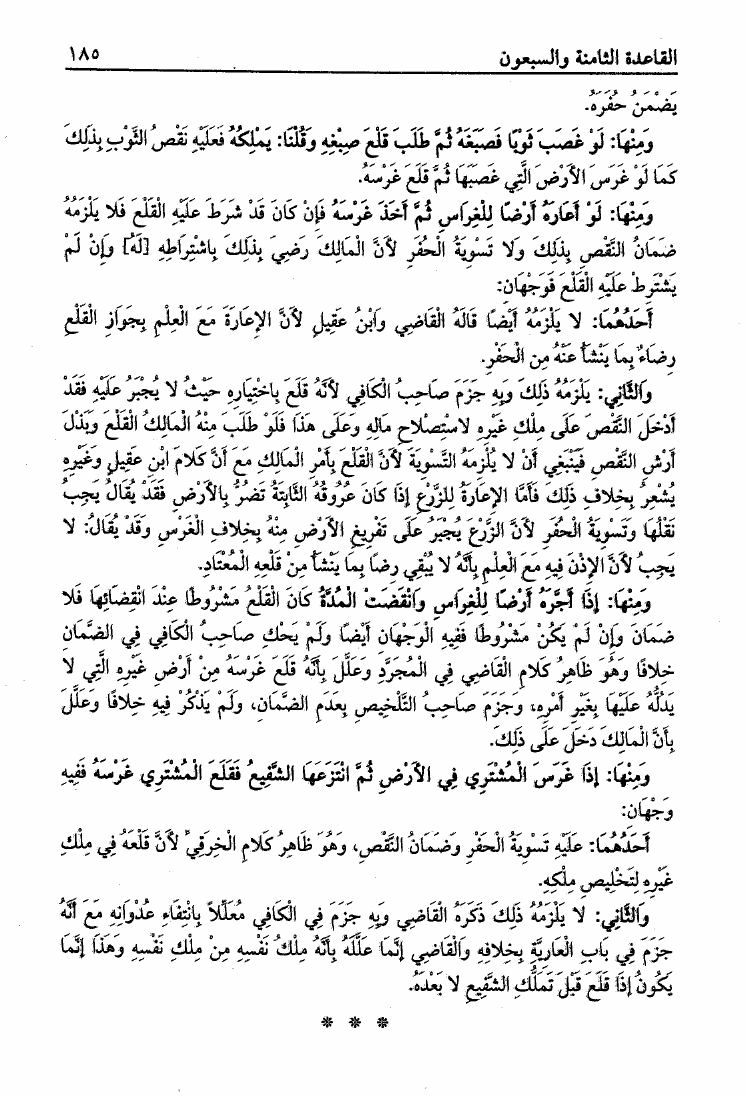 القاعدة الثامنة والسبعون ١٨٥
يَضْمَنُ حَفْرَهُ.
وَمِنْهَا: لَوْ غَصَبَ ثَوْبًا فَصَبَغَهُ ثُمَّ طَلَبَ قَلْعَ صِبْغِهِ وَقُلْنَا: يَمْلِكُهُ فَعَلَيْهِ نَقْصُ الثَّوْبِ بِذَلِكَ
كَمَا لَوْ غَرَسَ الأَرْضَ الَّتِي غَصَبَهَا ثُمَّ قَلَعَ غَرْسَهُ.
وَمِنْهَا: لَوْ أَعَارَهُ أَرْضًا لِلْغِرَاسِ ثُمَّ أَخَذَ غَرْسَهُ فَإِنْ كَانَ قَدْ شَرَطَ عَلَيْهِ الْقَلْعَ فَلا يَلْزَمُهُ
ضَمَانُ النَّقْصِ بِذَلِكَ وَلا تَسْوِيَةُ الْحَفْرِ لأَنَّ الْمَالِكَ رَضِيَ بِذَلِكَ بِاشْتِرَاطِهِ [لَهُ] وَإِنْ لَمْ
يَشْتَرِطْ عَلَيْهِ الْقَلْعَ فَوَجْهَانِ:
أَحَدُهُمَا: لا يَلْزَمُهُ أَيْضًا قَالَهُ الْقَاضِي وَابْنُ عَقِيلٍ لأَنَّ الإِعَارَةَ مَعَ الْعِلْمِ بِجَوَازِ الْقَلْعِ
رِضَاءٌ بِمَا يَنْشَأُ عَنْهُ مِنَ الْحَفْرِ.
وَالثَّانِي: يَلْزَمُهُ ذَلِكَ وَبِهِ جَزَمَ صَاحِبُ الْكَافِي لأَنَّهُ قَلَعَ بِاخْتِيَارِهِ حَيْثُ لا يُجْبَرُ عَلَيْهِ فَقَدْ
أَدْخَلَ النَّقْصَ عَلَى مِلْكِ غَيْرِهِ لاسْتِصْلاحِ مَالِهِ وَعَلَى هَذَا فَلَوْ طَلَبَ مِنْهُ الْمَالِكُ الْقَلْعَ وَبَذَلَ
أَرْشَ النَّقْصِ فَيَنْبَغِي أَنْ لا يُلْزِمَهُ التَّسْوِيَةَ لأَنَّ الْقَلْعَ بِأَمْرِ الْمَالِكِ مَعَ أَنَّ كَلامَ ابْنِ عَقِيلٍ وَغَيْرِهِ
يُشْعِرُ بِخِلافِ ذَلِكَ فَأَمَّا الإِعَارَةُ لِلزَّرْعِ إِذَا كَانَ عُرُوقُهُ الثَّابِتَةُ تَضُرُّ بِالأَرْضِ فَقَدْ يُقَالُ يَجِبُ
نَقْلُهَا وَتَسْوِيَةُ الْحَفْرِ لأَنَّ الزَّرْعَ يُجْبَرُ عَلَى تَفْرِيغِ الأَرْضِ مِنْهُ بِخِلافِ الْغَرْسِ وَقَدْ يُقَالُ: لا
يَجِبُ لأَنَّ الإِذْنَ فِيهِ مَعَ الْعِلْمِ بِأَنَّهُ لا يُبْقِي رِضًا بِمَا يَنْشَأُ مِنْ قَلْعِهِ الْمُعْتَادِ.
وَمِنْهَا: إِذَا أَجَّرَهُ أَرْضًا لِلْغِرَاسِ وَانْقَضَتْ الْمُدَّةُ كَانَ الْقَلْعُ مَشْرُوطًا عِنْدَ انْقِضَائِهَا فَلا
ضَمَانَ وَإِنْ لَمْ يَكُنْ مَشْرُوطًا فَفِيهِ الْوَجْهَانِ أَيْضًا وَلَمْ يَحْكِ صَاحِبُ الْكَافِي فِي الضَّمَانِ
خِلافًا وَهُوَ ظَاهِرُ كَلامِ الْقَاضِي فِي الْمُجَرَّدِ وَعَلَّلَ بِأَنَّهُ قَلَعَ غَرْسَهُ مِنْ أَرْضِ غَيْرِهِ الَّتِي لا
يَدَ لَهُ عَلَيْهَا بِغَيْرِ أَمْرِهِ، وَجَزَمَ صَاحِبُ التَّلْخِيصِ بِعَدَمِ الضَّمَانِ، وَلَمْ يَذْكُرْ فِيهِ خِلافًا وَعَلَّلَ
بِأَنَّ الْمَالِكَ دَخَلَ عَلَى ذَلِكَ.
وَمِنْهَا: إِذَا غَرَسَ الْمُشْتَرِي فِي الأَرْضِ ثُمَّ انْتَزَعَهَا الشَّفِيعُ فَقَلَعَ الْمُشْتَرِي غَرْسَهُ فَفِيهِ
وَجْهَانِ:
أَحَدُهُمَا: عَلَيْهِ تَسْوِيَةُ الْحَفْرِ وَضَمَانُ النَّقْصِ، وَهُوَ ظَاهِرُ كَلامِ الْخِرَقِيِّ لأَنَّ قَلْعَهُ فِي مِلْكِ
غَيْرِهِ لِتَخْلِيصِ مِلْكِهِ.
وَالثَّانِي: لا يَلْزَمُهُ ذَلِكَ ذَكَرَهُ الْقَاضِي وَبِهِ جَزَمَ فِي الْكَافِي مُعَلِّلاً بِانْتِفَاءِ عُدْوَانِهِ مَعَ أَنَّهُ
جَزَمَ فِي بَابِ الْعَارِيَّةِ بِخِلافِهِ وَالْقَاضِي إِنَّمَا عَلَّلَهُ بِأَنَّهُ مِلْكُ نَفْسِهِ مِنْ مِلْكِ نَفْسِهِ وَهَذَا إِنَّمَا
يَكُونُ إِذَا قَلَعَ قَبْلَ تَمَلُّكِ الشَّفِيعِ لا بَعْدَهُ.
* * *